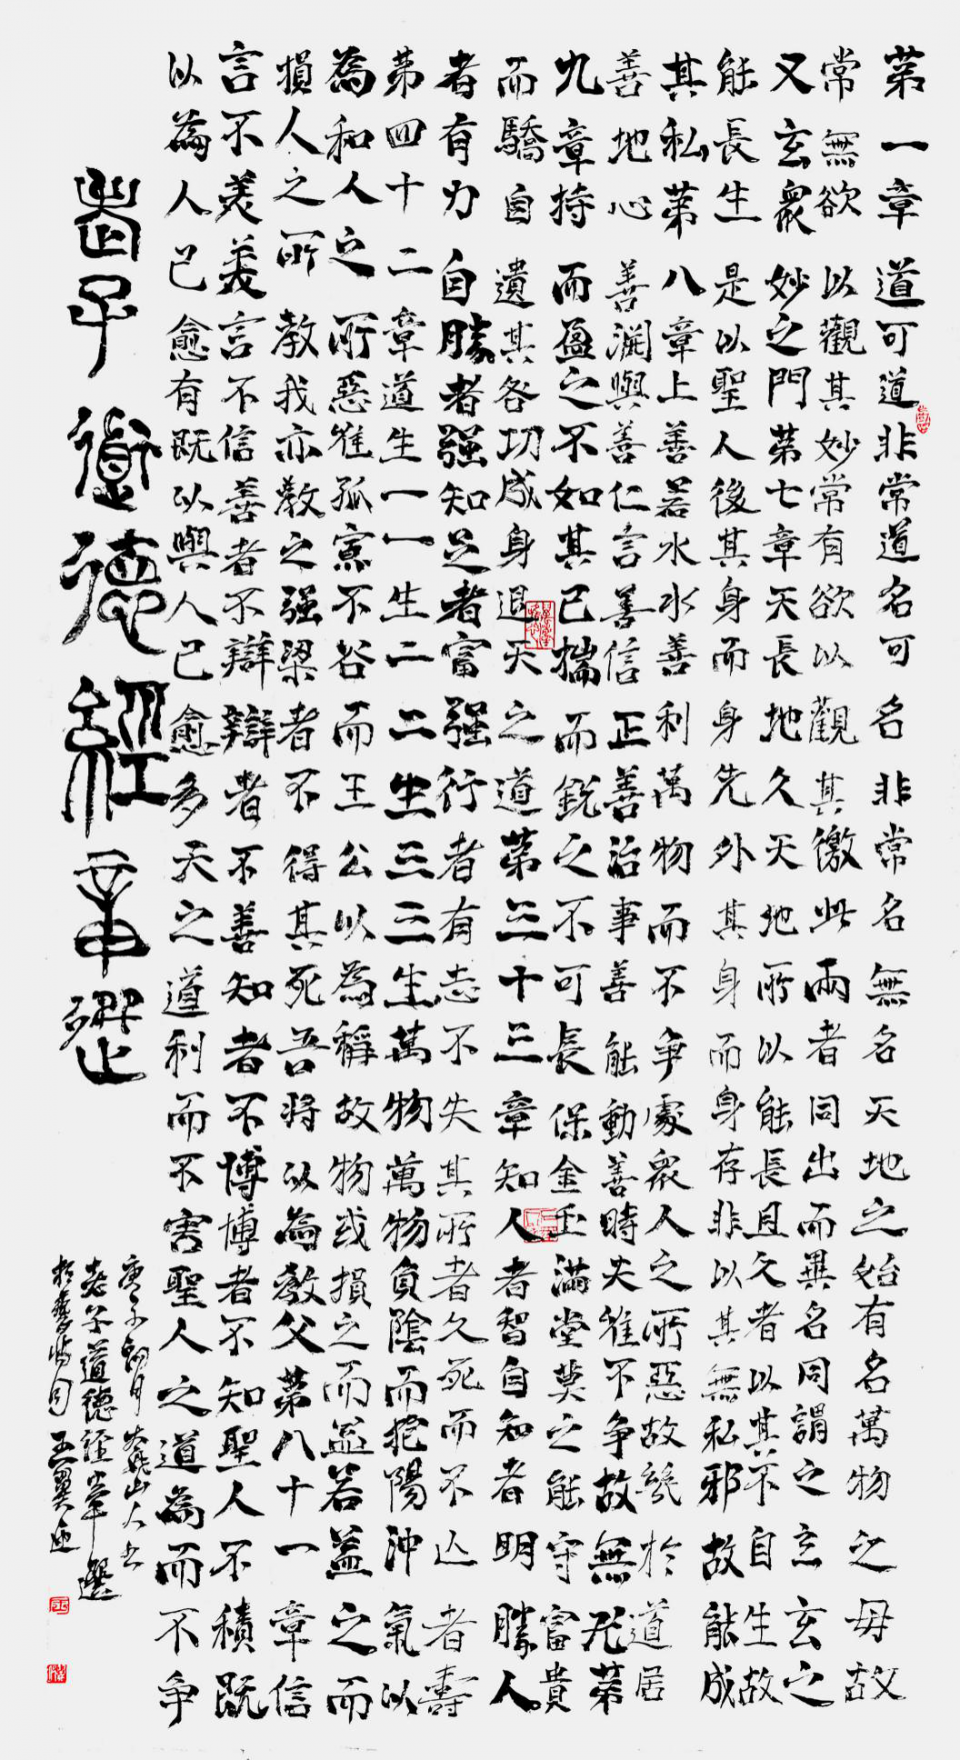 第一章道可道非常道名可名非常名無名天地之始有名萬物之毋故
常無欲以觀其妙常有欲以觀其徼此兩者同出而異名同謂之玄玄之
又玄衆妙之門第七章天長地久天地所以能長且久者以其不自生故
能長生是以聖人後其身而身先外其身而身存非以其無私邪故能成
其私第八章上善若水水善利萬物而不争處衆人之所惡故幾於道居
善地心善淵與善仁言善信正善治事善能動善時夫惟不争故無尤第
九章持而盈之不如其已揣而銳之不可長保金玉滿堂莫之能守富貴
而驕自遺其各功成身退天之道第三十三章知人者智自知者明勝人
者有力自勝者强知足者富强行者有志不失其所者久死而不亾者壽
第四十二章道生一一生二二生三三生萬物萬物負陰而抱陽沖氣以
為和人之所惡惟孤寡不谷而王公以為稱故物或損之而益若益之而
損人之所教我亦教之强梁者不得其死吾將以為教父第八十一章信
言不美美言不信善者不辯辯者不善知者不博博者不知聖人不積既
以為人己愈有既以與人己愈多天之道利而不害聖人之道為而不争
老子道德經章選
庚子月太姥山人書
老子道德經章選
於王翼